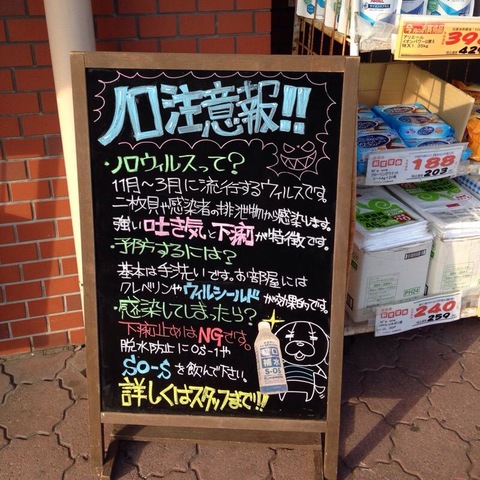 ノロ注意報!!
・ノロウィルスって?
11月~3月に流行するウィルスです。
二枚貝や感染者の排泄物から感染します。
強い吐き気、下痢が特徴です。
・予防するには?
基本は手洗いです。お部屋には
クレベリンやウィルシールドが効果的です。
・感染してしまったら?
下痢止めはNGです。
脱水防止にOS-1や
SO-Sを飲んで下さい。
詳しくはスタッフまで!!
経口
補水
S-OS
398
429
188
203
240
259